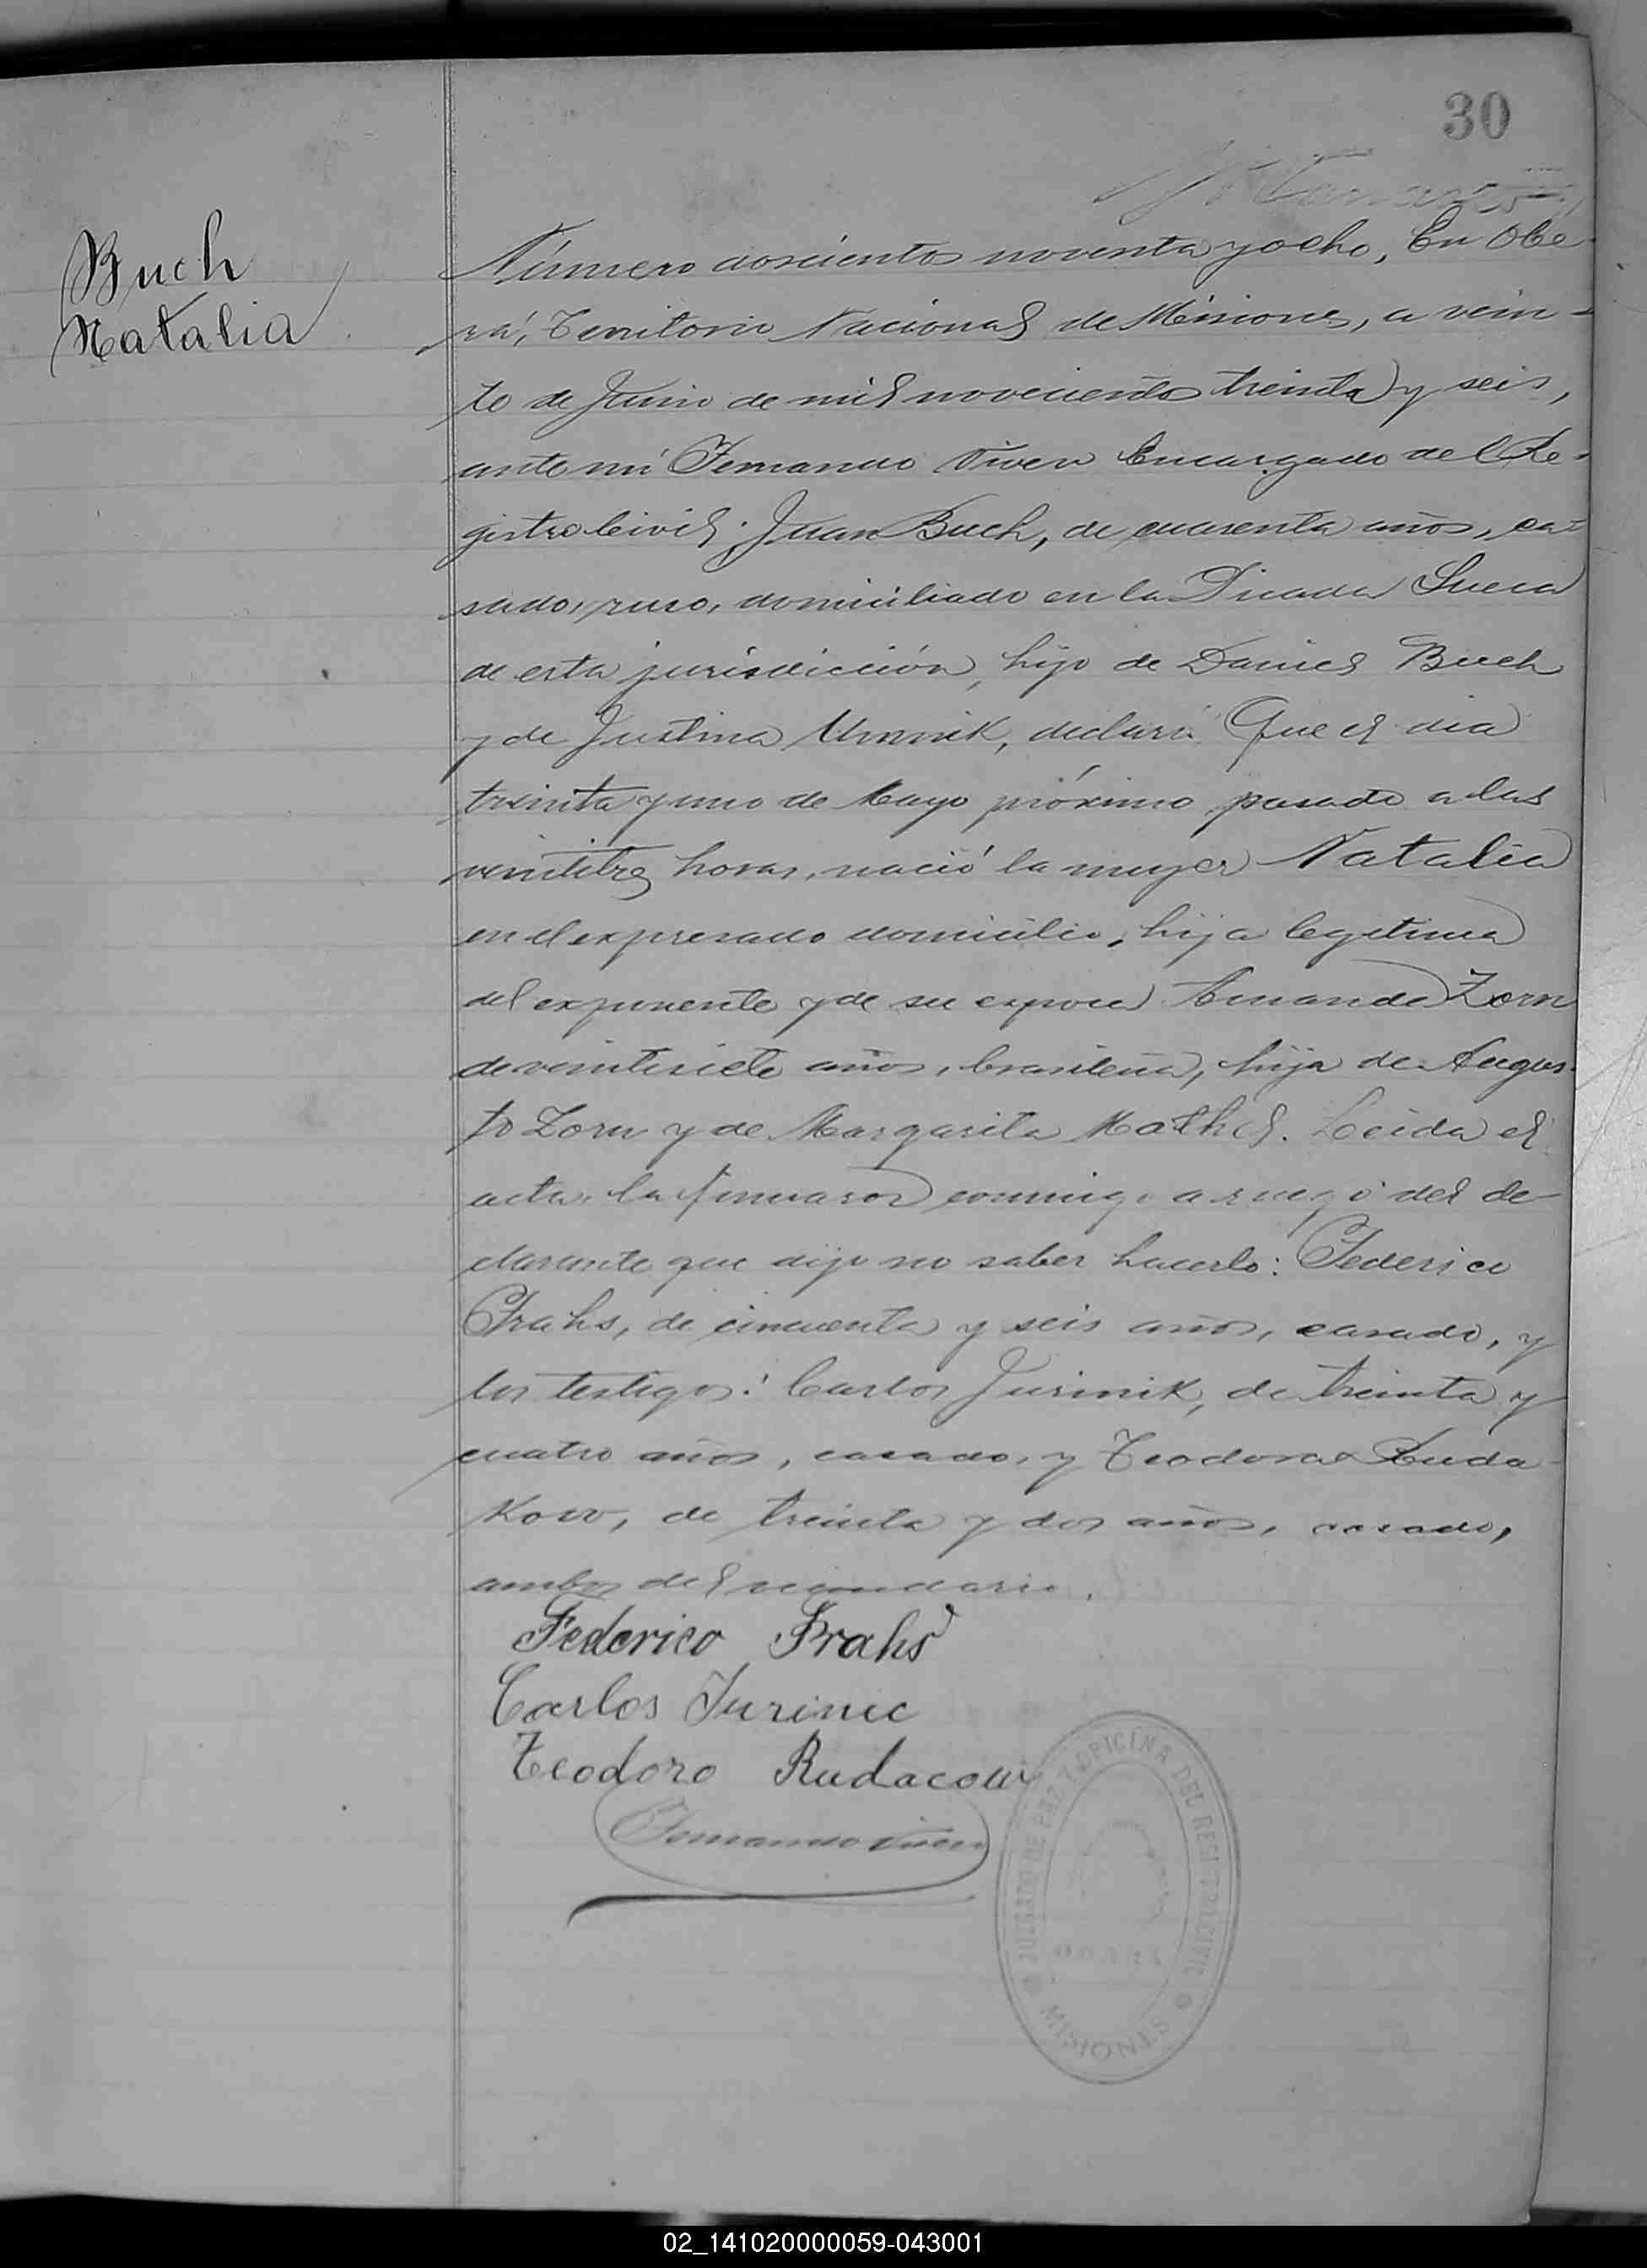 30
Buch
Natalia
Número doscientos noventa y ocho, En Obe-
rá, Territorio Nacional de Misiones, a vein-
te de Junio de mil novecientos treinta y seis,
ante mi Fernando Viven Encargado del Re-
gistro Civil: Juan Buch, de cuarenta años, ca-
sado, ruso, domiciliado en la Picada Sueca
de esta jurisdicción, hijo de Daniel Buch
y de Justina, declaró: Que el dia
treinta y uno de Mayo próximo pasado a las
veintitres horas, nació la mujer Natalia
en el expresado domicilio, hija legitima
del exponente y de su esposa Amanda Zorn
de veintisiete años, brasileña, hija de Augus-
to Zorn y de Margarita Mathel. Leida el
acta, la firmaron conmigo a ruego del de-
clarante que dijo no saber hacerlo: Federico
Frahs, de cincuenta y seis años, casado, y
los testigos: Carlos Jurinik, de treinta y
cuatro años, casado, y Teodoro Ruda-
kow, de treinta y dos años, casado,
ambos del vecindario.
Federico Frahs
Carlos Jurinic
Teodoro Rudacow
Fernando Viven
JUZGADO DE PAZ Y OFICINA DEL REGISTRO CIVIL
OBERA
MISIONES
02_141020000059-043001